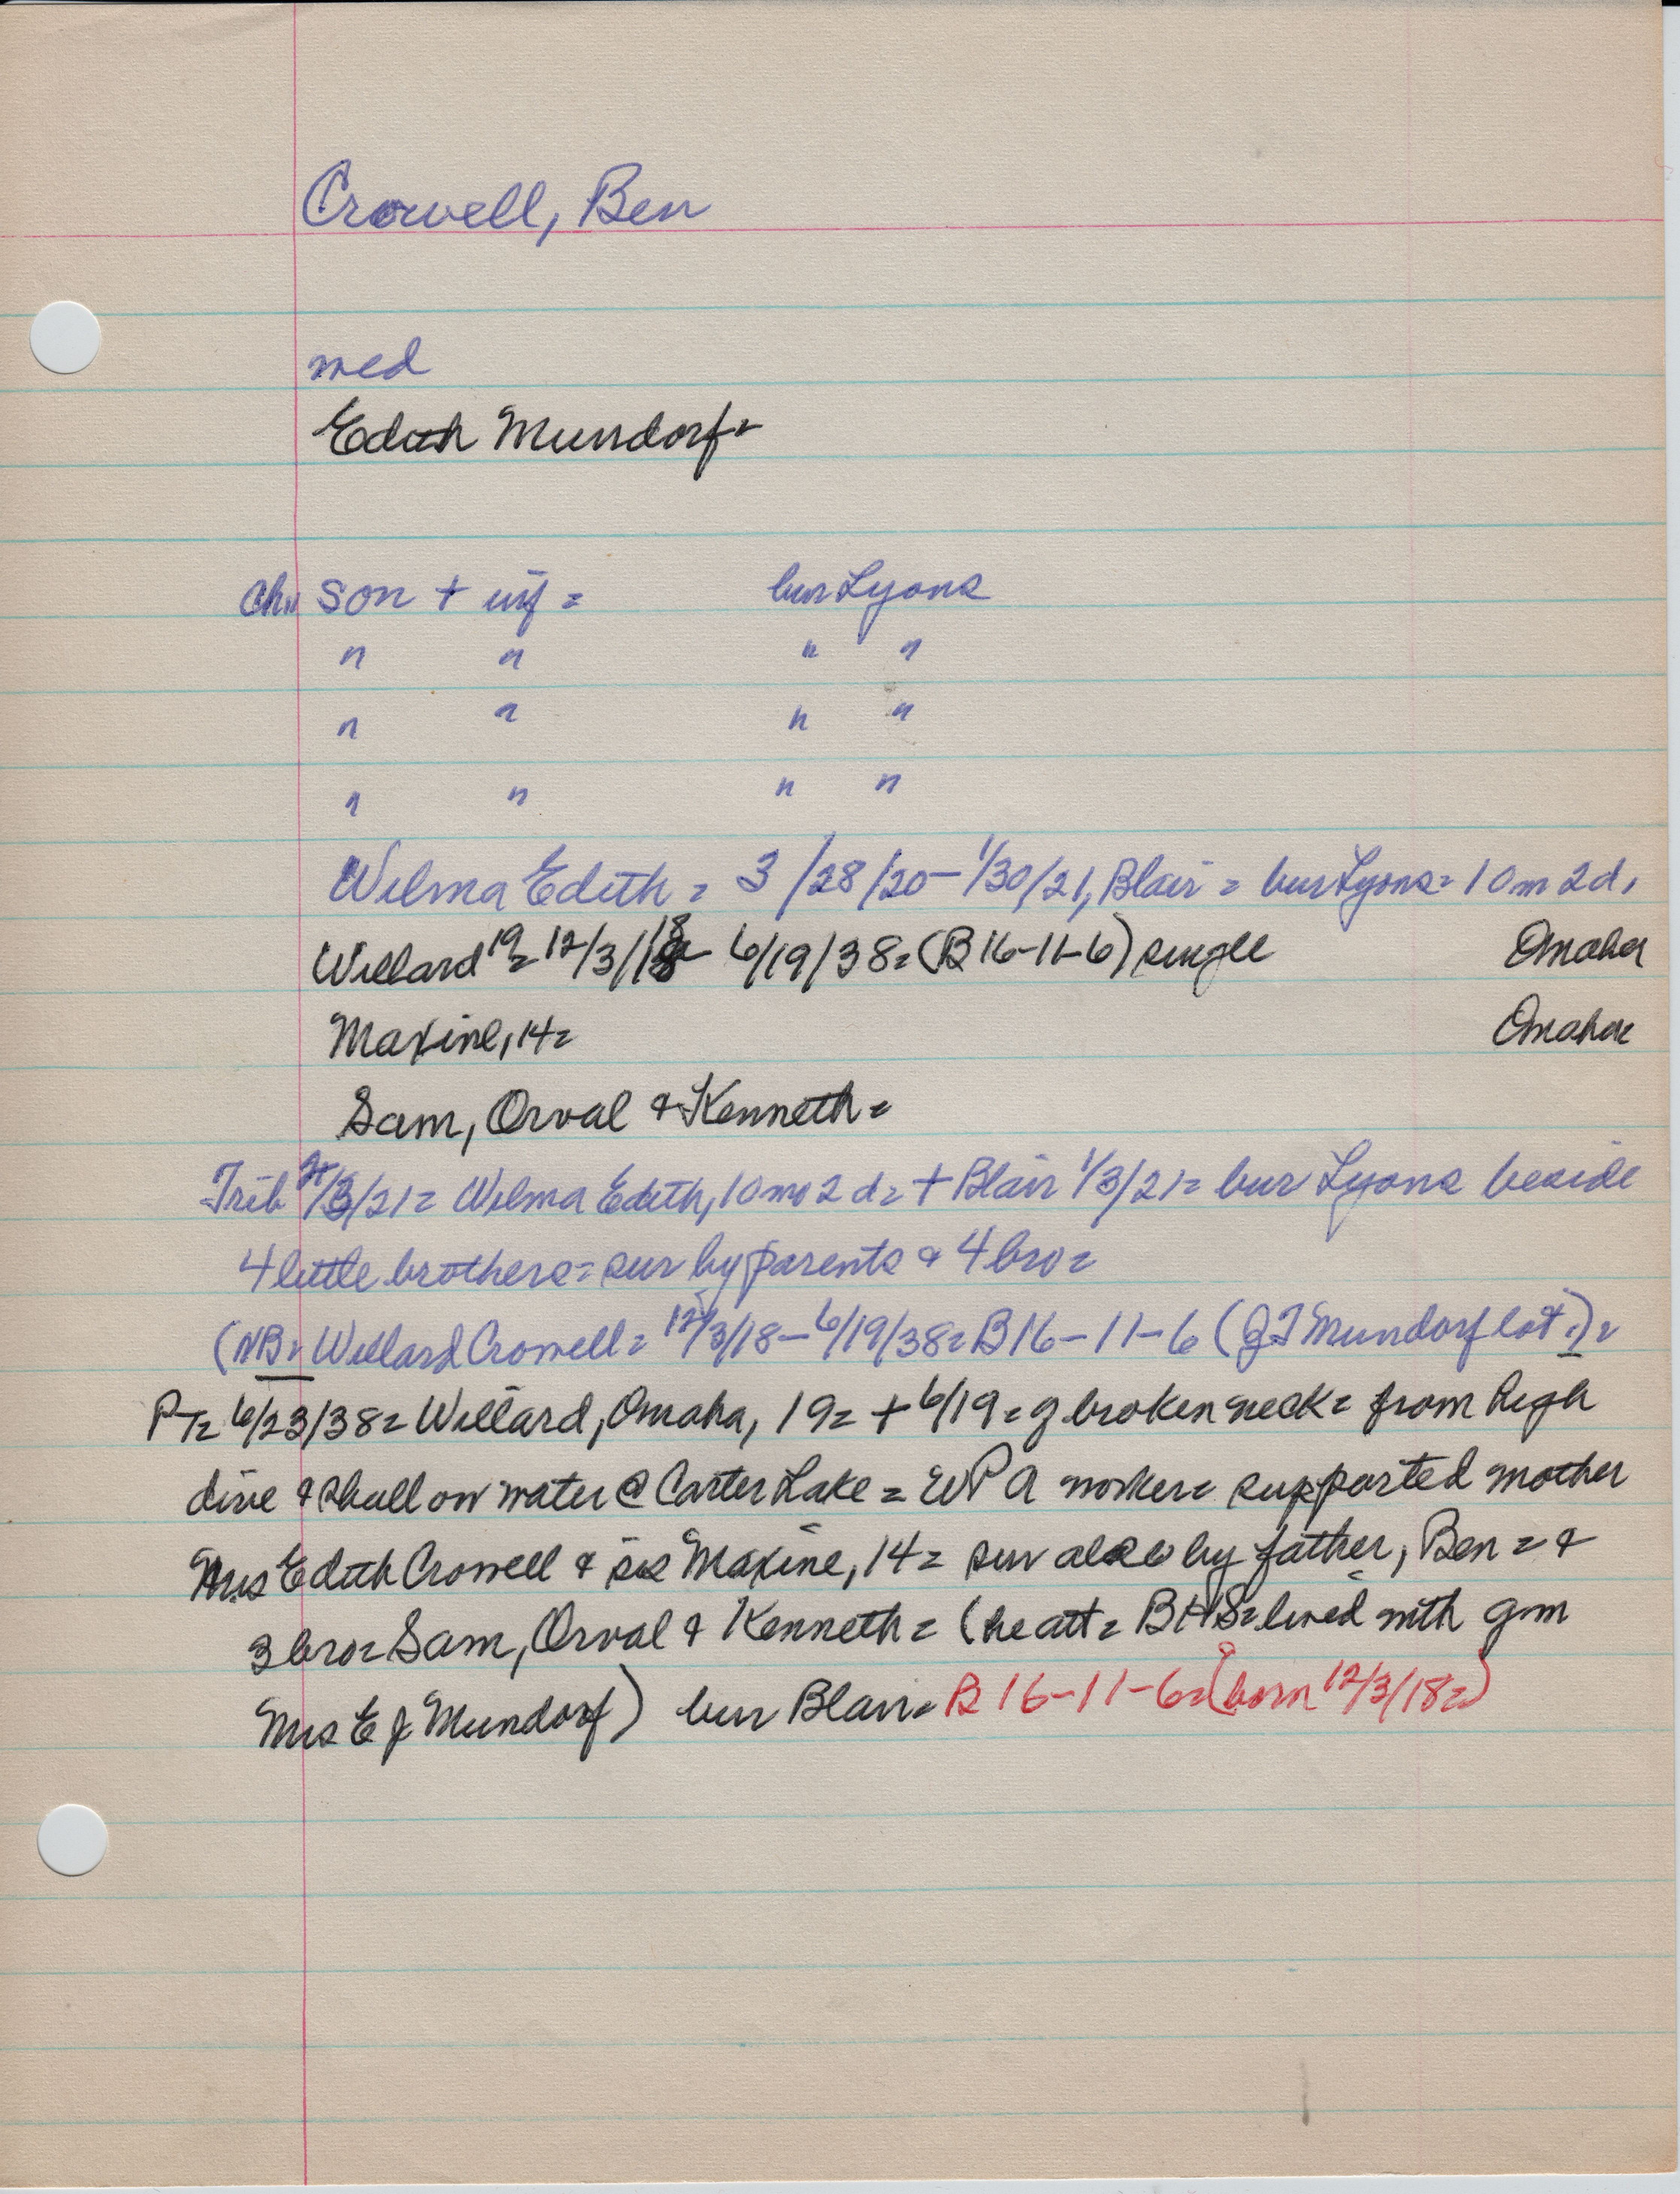 Crowell, Ben
med
Edith Mundorf=
Ch. son + inf = bur Lyons
" " " "
" " " "
" " " "
Wilma Edith = 3/28/20 - 1/30/21, Blair = bur Lyons = 10m 2d.
Willard 19= 12/3/18 - 6/19/38= (B 16-11-6) single Omaha
Maxine, 14= Omaha
Sam, Orval & Kenneth =
Trib /3/21= Wilma Edith, 10 mo 2 d= + Blair 1/3/21= bur Lyons beside
4 little brothers= sur by parents & 4 bro=
(NB= Willard Crowell= 12/3/18 - 6/19/38= B16-11-6 (Mundorf lot.)=
PT= 6/23/38= Willard, Omaha, 19= + 6/19= g broken neck= from high
dive & shallow water @ Carter Lake = WPA worker= supported mother
Mrs Edith Crowell & sis Maxine, 14= sur also by father, Ben = &
3 bro= Sam, Orval & Kenneth = (he att= BHS= lived with gm
Mrs E J Mundorf) bur Blair= B 16-11-6= (born 12/3/18=)